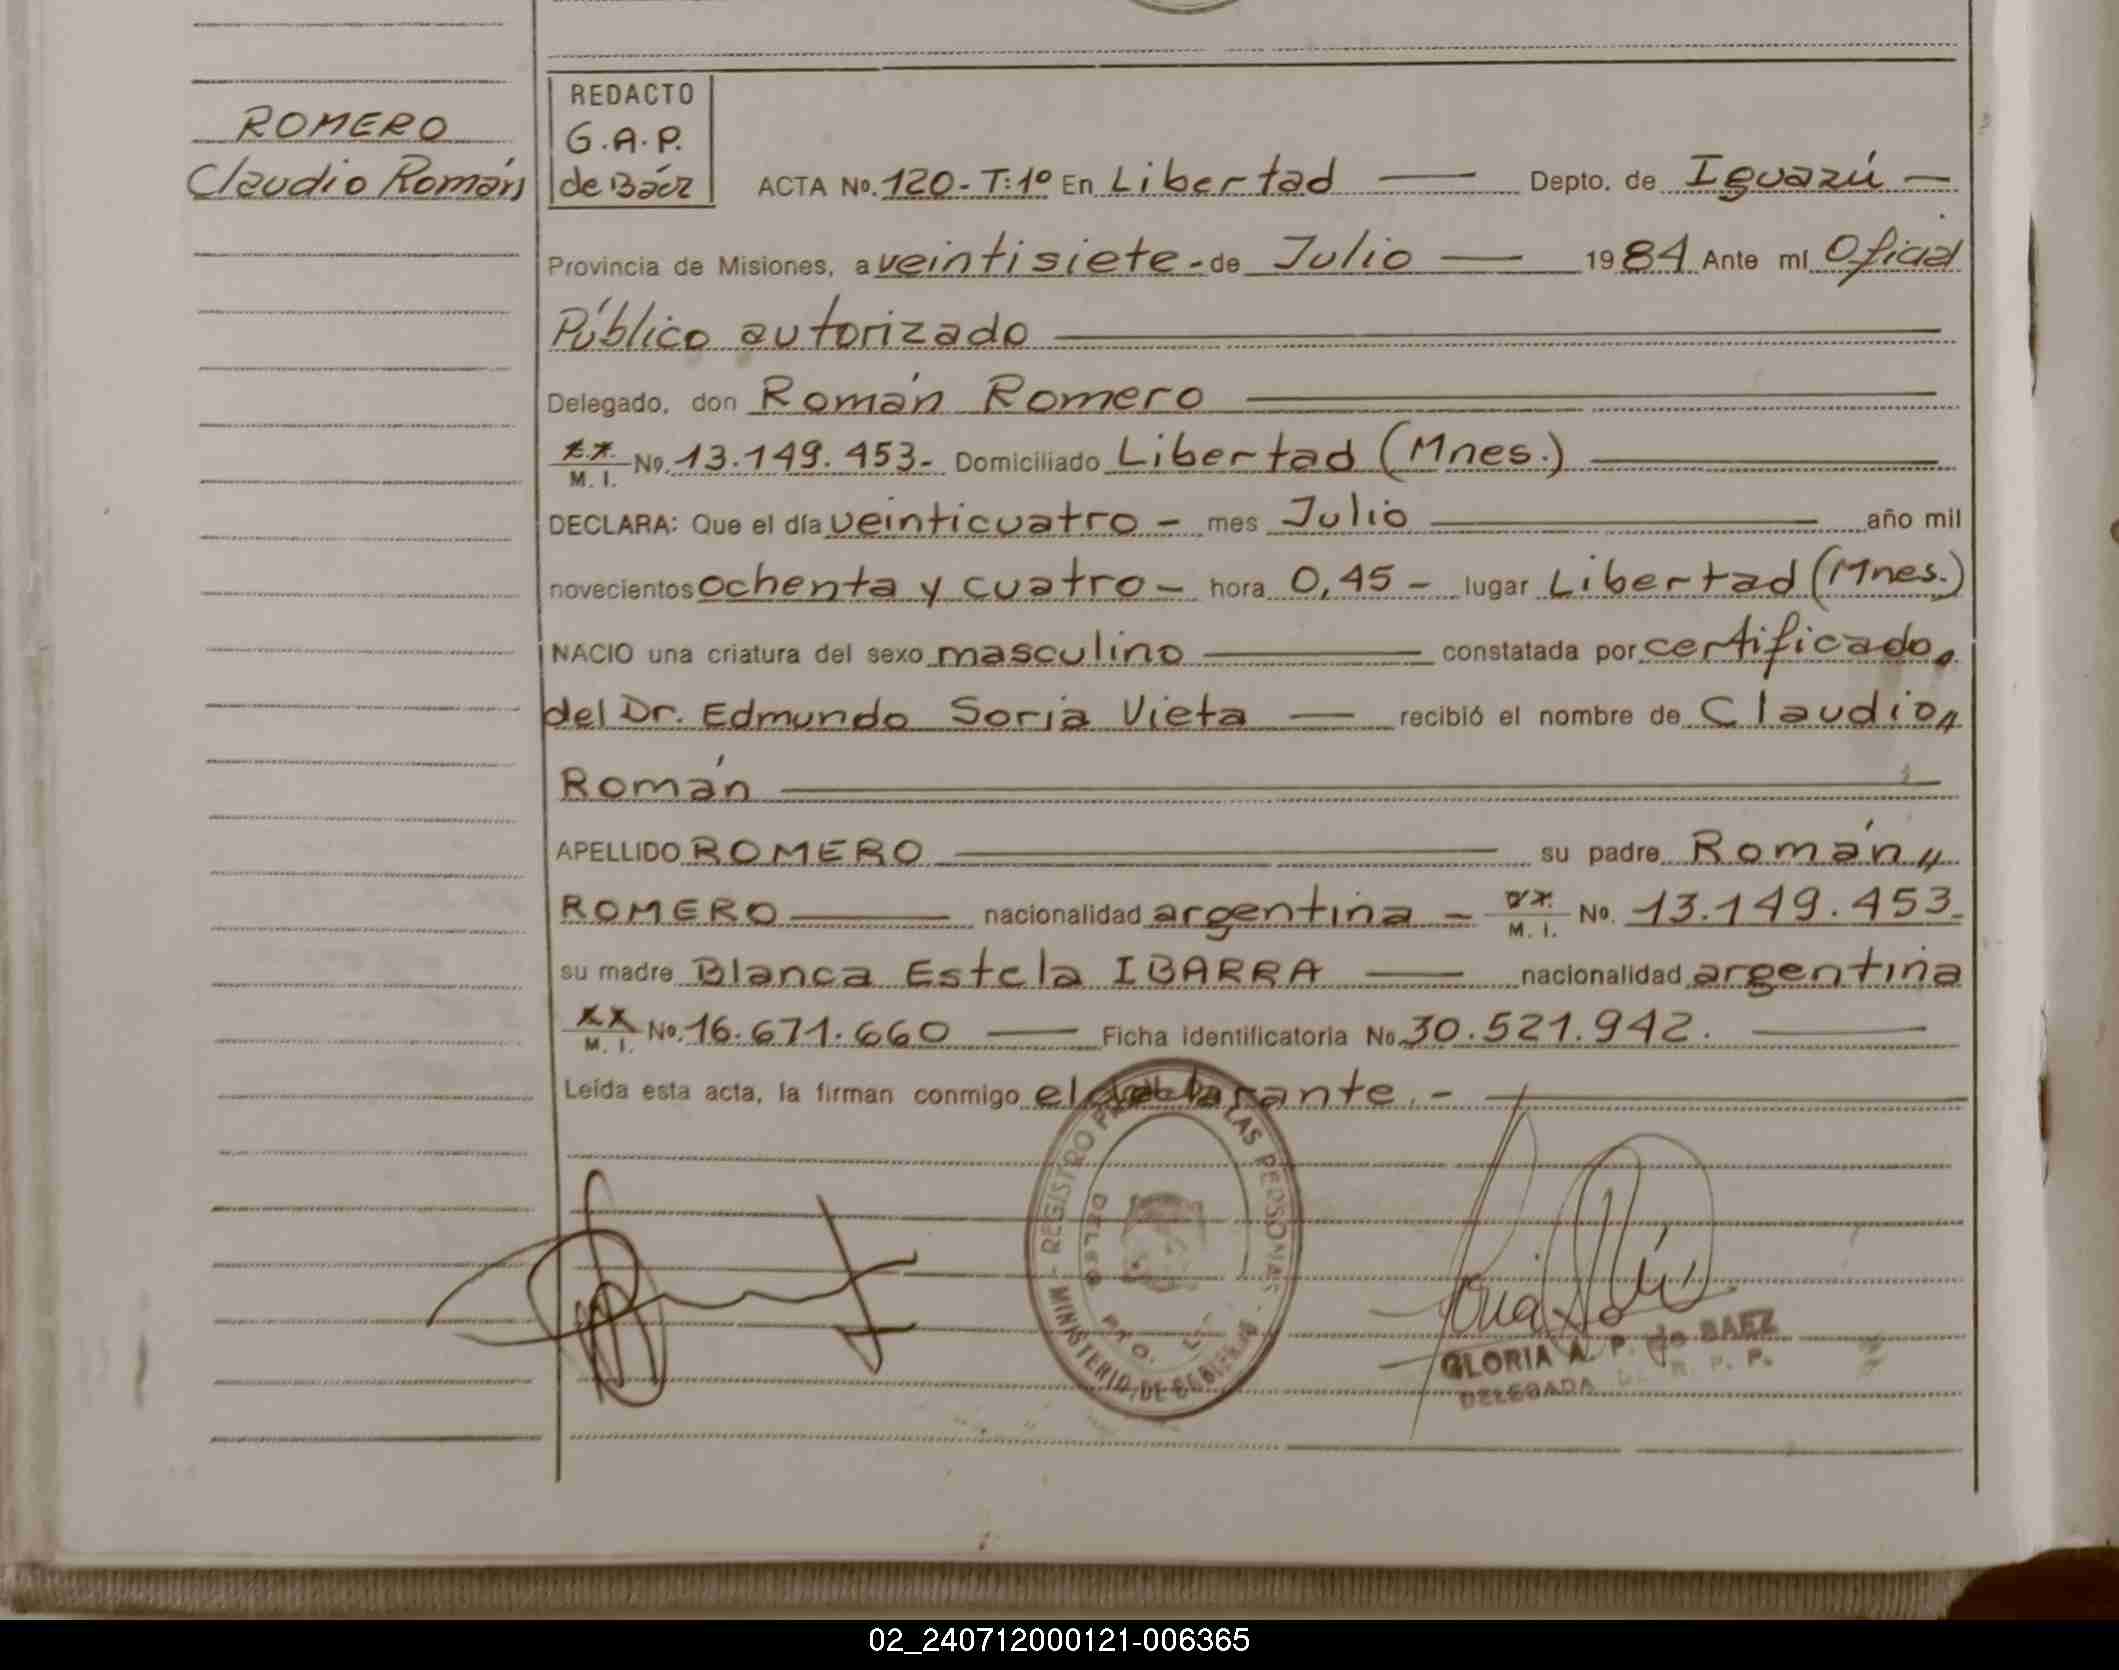 ROMERO
Claudio Román
REDACTO
G.A.P.
de Báez
ACTA No. 120-T:1º En Libertad — Depto. de Iguazú —
Provincia de Misiones, a veintisiete - de Julio — 1984 Ante mí Oficial
Público autorizado
Delegado, don Román Romero
M. I. No. 13.149.453- Domiciliado Libertad (Mnes.)
DECLARA: Que el día veinticuatro - mes Julio — año mil
novecientos ochenta y cuatro - hora 0,45 - lugar Libertad (Mnes.)
NACIO una criatura del sexo masculino — constatada por certificado
del Dr. Edmundo Soria Vieta — recibió el nombre de Claudio
Román
APELLIDO ROMERO — su padre Román
ROMERO — nacionalidad argentina - M. I. No. 13.149.453-
su madre Blanca Estela IBARRA — nacionalidad argentina
M. I. No. 16.671.660 — Ficha identificatoria No. 30.521.942.
Leída esta acta, la firman conmigo el declarante.-
REGISTRO DE LAS PERSONAS
MINISTERIO DE GOBIERNO
GLORIA A. P. de BAEZ
DELEGADA R. P. P.
02_240712000121-006365